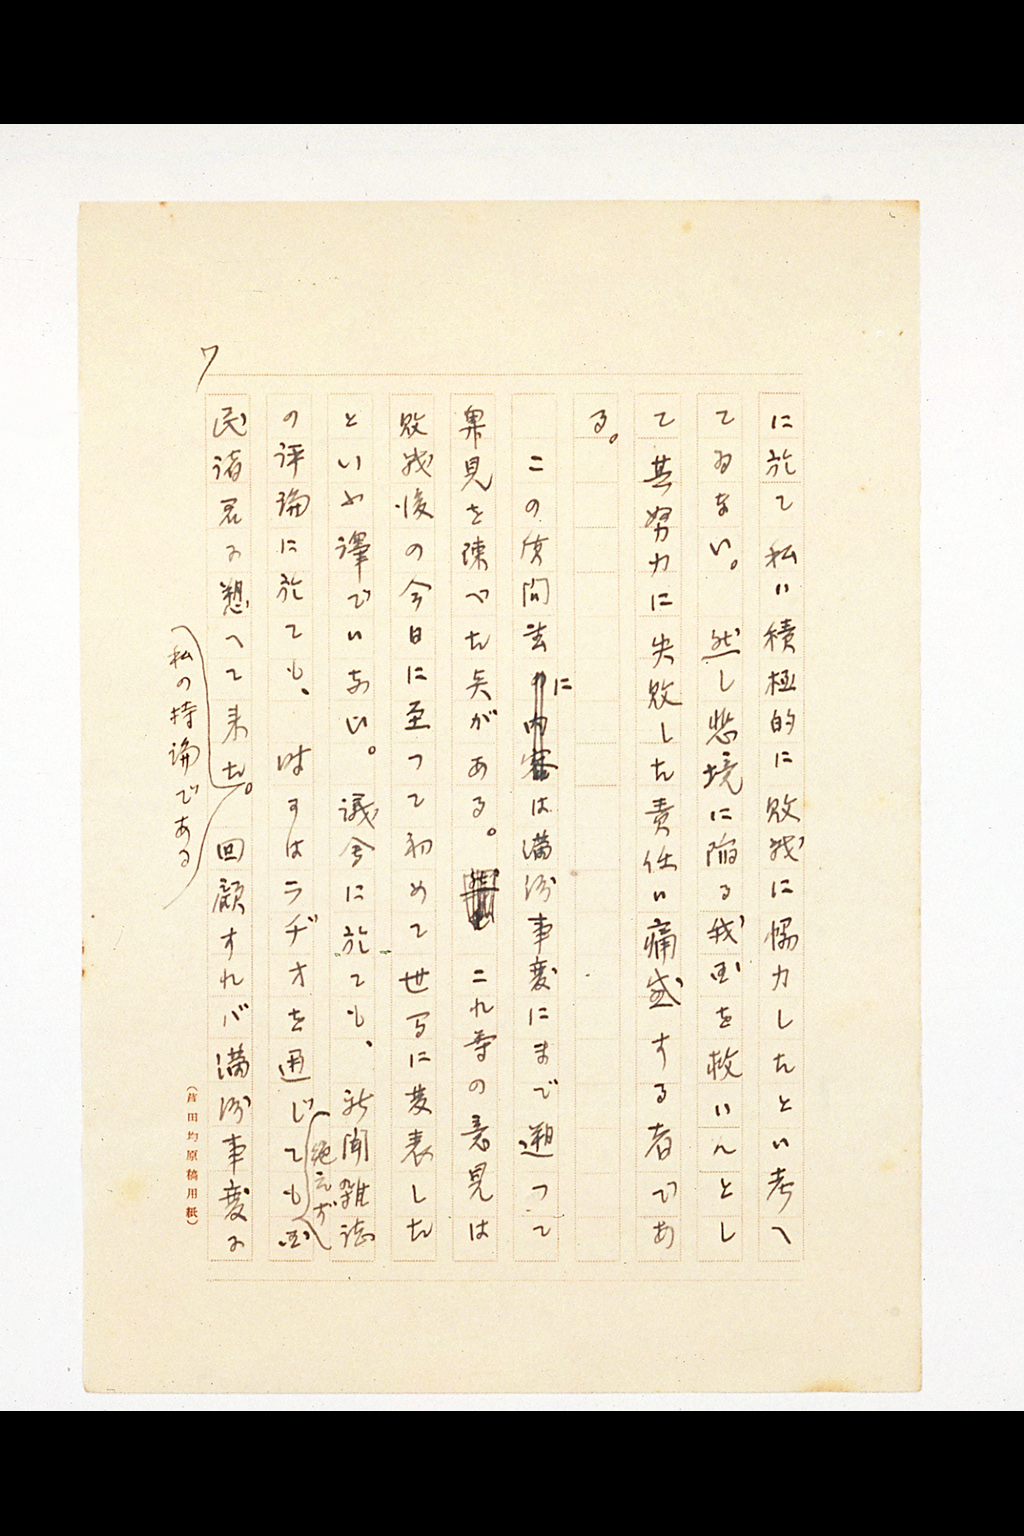 に於て私ハ積極的に敗戦に協力したとハ考へ
てゐない。然し悲境に陥る我国を救ハんとし
て其努力に失敗した責任ハ痛感する者であ
る。
この質問書のに内容は満洲事変にまで遡つて
異見を陳べた点がある。これ等の意見は
敗戦後の今日に至つて初めて世写に発表した
といふ譯でハない。議会に於ても、新聞雑誌
の評論に於ても、時にはラヂオを通じても絶えず国
民諸君に愬へて来た。回顧すれバ満洲事変に
私の持論である
7
(芦田均原稿用紙)